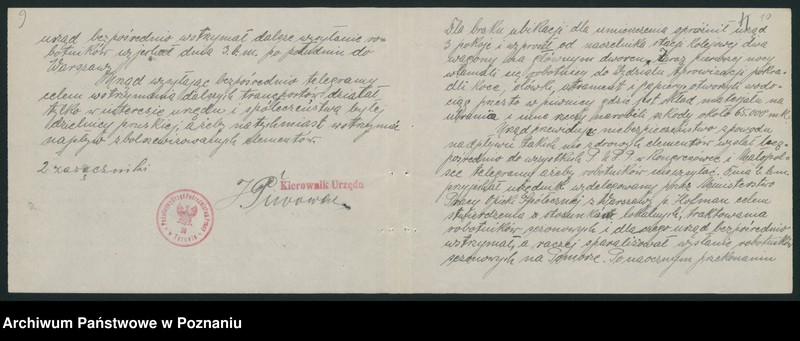 9
urząd bezpośrednio wstrzymał dalsze wysyłanie ro-
botników wyjechał dnia 3. b.m. po południu do
Warszawy.
Urząd wysyłając bezpośrednio telegramy
celem wstrzymania dalszych transportów działał
tylko w interesie urzędu i społeczeństwa byłej
dzielnicy pruskiej, ażeby natychmiast wstrzymać
napływ zbolszewizowanych elementów.
2 załączniki
Kierownik Urzędu
w Toruniu
10
Dla braku ubikacji dla umieszczenia opróżnił urząd
3 pokoje i wyprosił od naczelnika stacji kolejowej dwa
wagony na głównym dworcu. Zaraz pierwszej nocy
włamali się robotnicy do Wydziału aprowizacji pokra-
dli koce, ołówki, atrament i papiery, otworzyli wodo-
ciąg prosto w piwnicy gdzie jest skład materjału na
ubrania i inne rzeczy narobili szkody około 65.000 mk.
Urząd przewidując niebezpieczeństwo z powodu
napływu takich nie zdrowych elementów wysłał bez-
pośrednio do wszystkich P.U.P.P. w Kongresówce i Małopol-
sce telegramy ażeby robotników nie wysyłać. Dnia 2. b.m.
przyjechał urzędnik wydelegowany przez Ministerstwo
Pracy i Opieki Społecznej z Warszawy p. Hofman celem
stwierdzenia stosunków lokalnych, traktowania
robotników sezonowych i dlaczego urząd bezpośrednio
wstrzymał, a raczej sparaliżował wysłanie robotników
sezonowych na Pomorze. Po naocznym przekonaniu
Archiwum Państwowe w Poznaniu